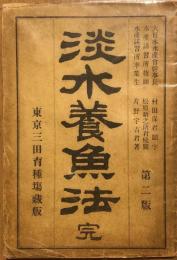 大日本水産會幹事長 村田保君題字
水産講習所技師 松原新之助君校閲
水産講習所卒業生 片野宇吉君著
第二版
淡水養魚法 完
東京三田育種塲藏版